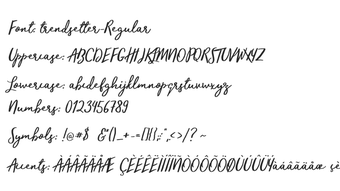 Font: trendsetter-Regular
Uppercase: ABCDEFGHIJKLMNOPQRSTUVWXYZ
Lowercase: abcdefghijklmnopqrstuvwxyz
Numbers: 0123456789
Symbols: !@#$ &*()_+-=[]{};:",<>/?~
Accents: ÀÁÂÃÄÅÆ ÇÈÉÊËÌÍÎÏÑÒÓÔÕÖØÙÚÛÜÝàáâãäåæ çè